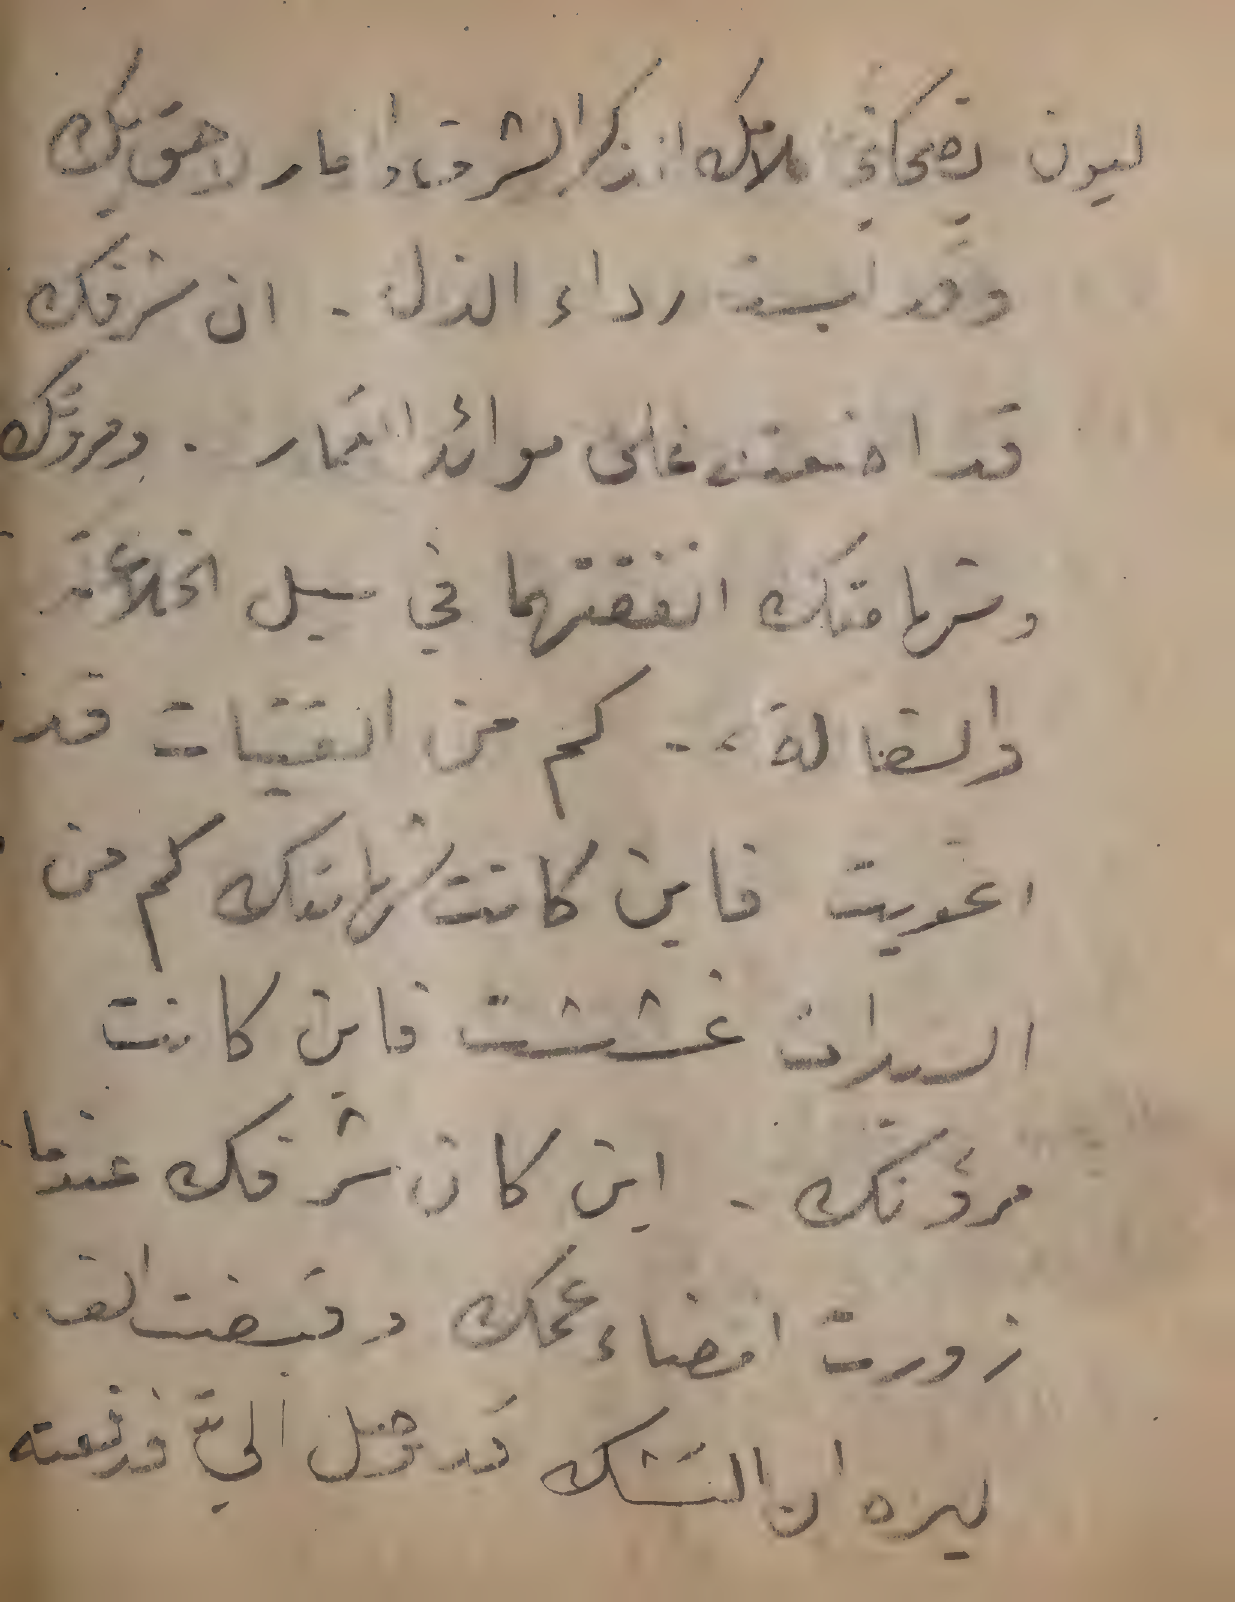 ليون يضحكني كلامك اتذكر الشرف والعار لاحق بك
وقد لبست رداء الذل . ان شرفك
قد اضعته على موائد القمار . ومروتك
وشهامتك انفقتهما في سبيل الخلاعة
والسفالة .. كم من الفتيات قد
اغويت فاين كانت شهامتك كم من
السيدات غششت فاين كانت
مرؤتك . اين كان شرفك عندما
زورت امضاء عمك وقبضت الف
ليره ان الشك قد وصل اليّ فدفعته